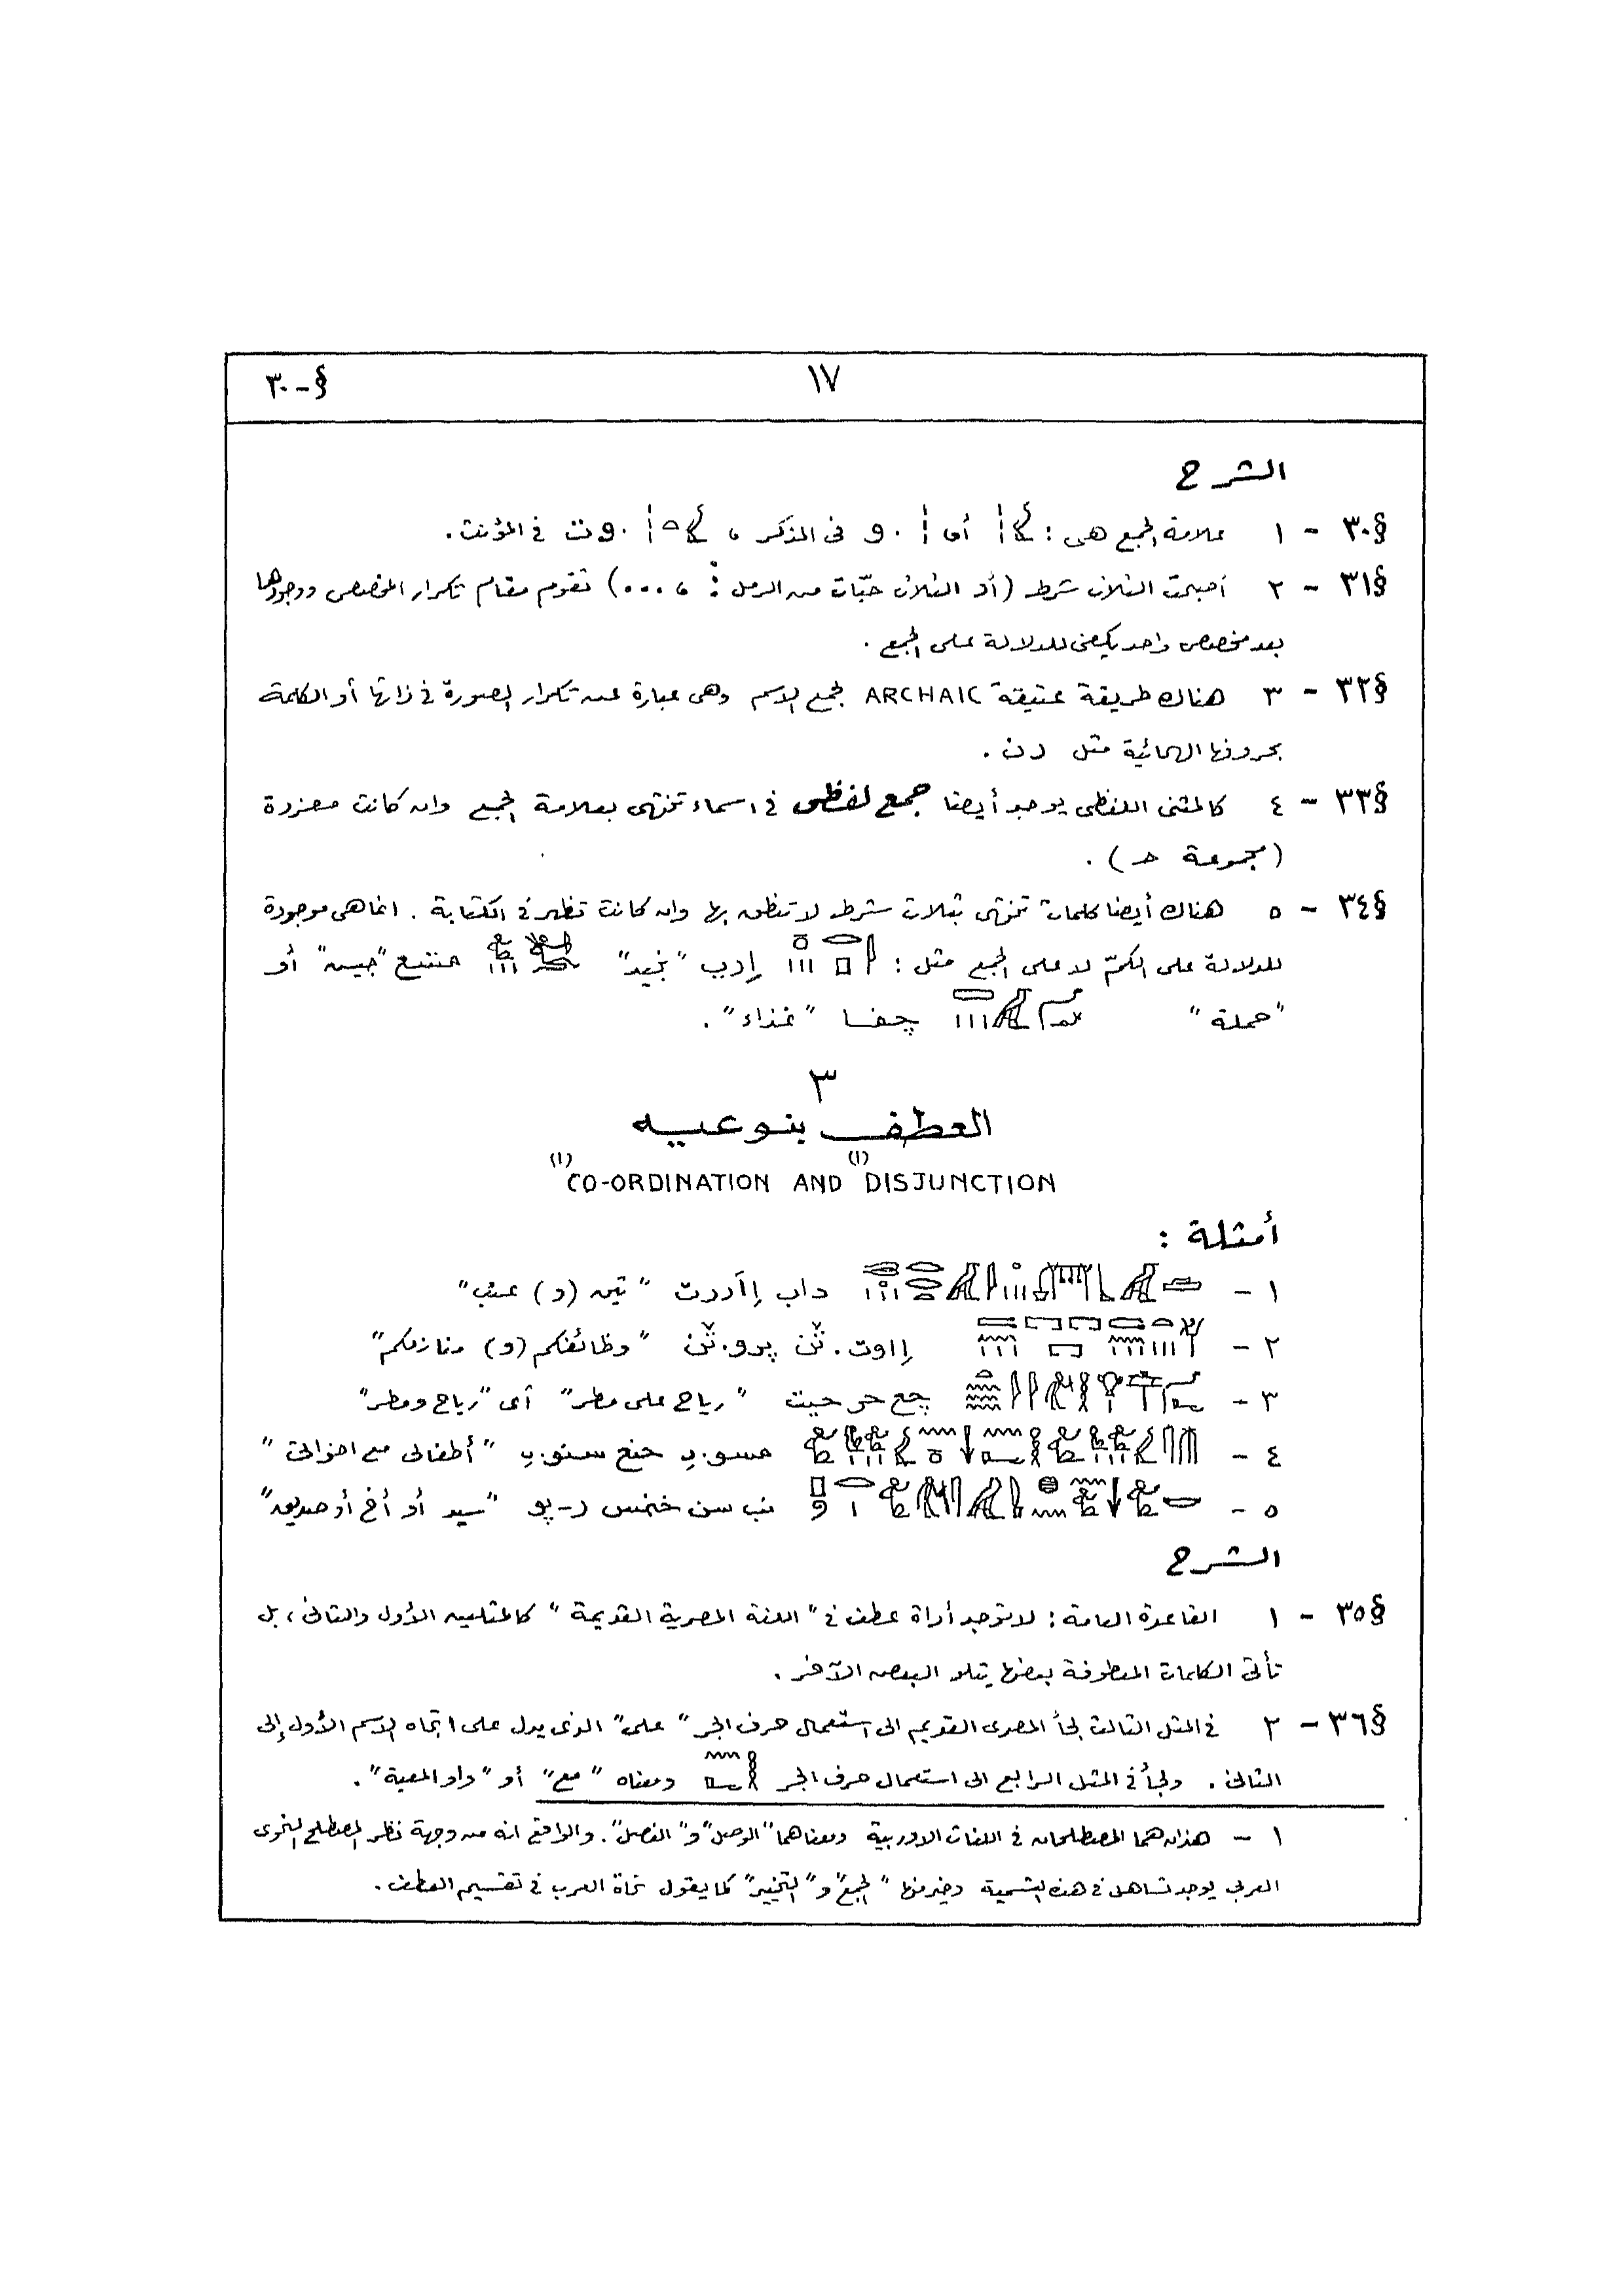 §-٣٠
١٧
الشرح
§٣٠ - ١ علامة الجمع هى : أى .و فى المذكر ، .وت فى المؤنث .
§٣١ - ٢ أصبحت الثلاث شرط (أو الثلاث حبّات من الرمل : ، ...) تقوم مقام تكرار المخصص ووجودها
بعد مخصص واحد يكفى للدلالة على الجمع .
§٣٢ - ٣ هناك طريقة عتيقة ARCHAIC لجمع الاسم وهى عبارة عن تكرار الصورة فى ذاتها أو الكلمة
بحروفها الهجائية مثل رن .
§٣٣ - ٤ كالمثنى اللفظى يوجد أيضا جمع لفظى فى اسماء تنتهى بعلامة الجمع وان كانت مفردة
(مجموعة حـ) .
§٣٤ - ٥ هناك أيضا كلمات تنتهى بثلاث شرط لا تنطق بها وان كانت تظهر فى الكتابة . انما هى موجودة
للدلالة على الكمّ لا على الجمع مثل : إرپ "نبيذ" منفع "جيش" أو
"حملة" چفا "غذاء" .
٣
العطف بنوعيه
(١) (١)
CO-ORDINATION AND DISJUNCTION
أمثلة :
١ - داب إاَررت "تين (و) عنب"
٢ - إاوت.ثن پرو.ثن "وظائفكم (و) منازلكم"
٣ - چع حر حيت "رياح على مطر" أى "رياح ومطر"
٤ - مسو.ى حنع سنو.ى "أطفالى مع اخوالى"
٥ - نب سن خنمس ر-پو "سيد أو أخ أو صديق"
الشرح
§٣٥ - ١ القاعدة العامة : لا توجد أداة عطف فى "اللغة المصرية القديمة" كالمثلين الأول والثانى ، بل
تأتى الكلمات المعطوفة بعضها يتلو البعض الآخر .
§٣٦ - ٢ فى المثل الثالث لجأ المصرى القديم الى استعمال حرف الجر "على" الذى يدل على اتجاه الاسم الأول إلى
الثانى . ولجأ فى المثل الرابع الى استعمال حرف الجر ومعناه "مع" أو "واو المعية" .
١ - هذان هما المصطلحان فى اللغات الاوربية ومعناهما "الوصل" و "الفصل" . والواقع انه من وجهة نظر المصطلح النحوى
العربى يوجد تساهل فى هذه التسمية وخير منها "الجمع" و "التخيير" كما يقول نحاة العرب فى تقسيم العطف .